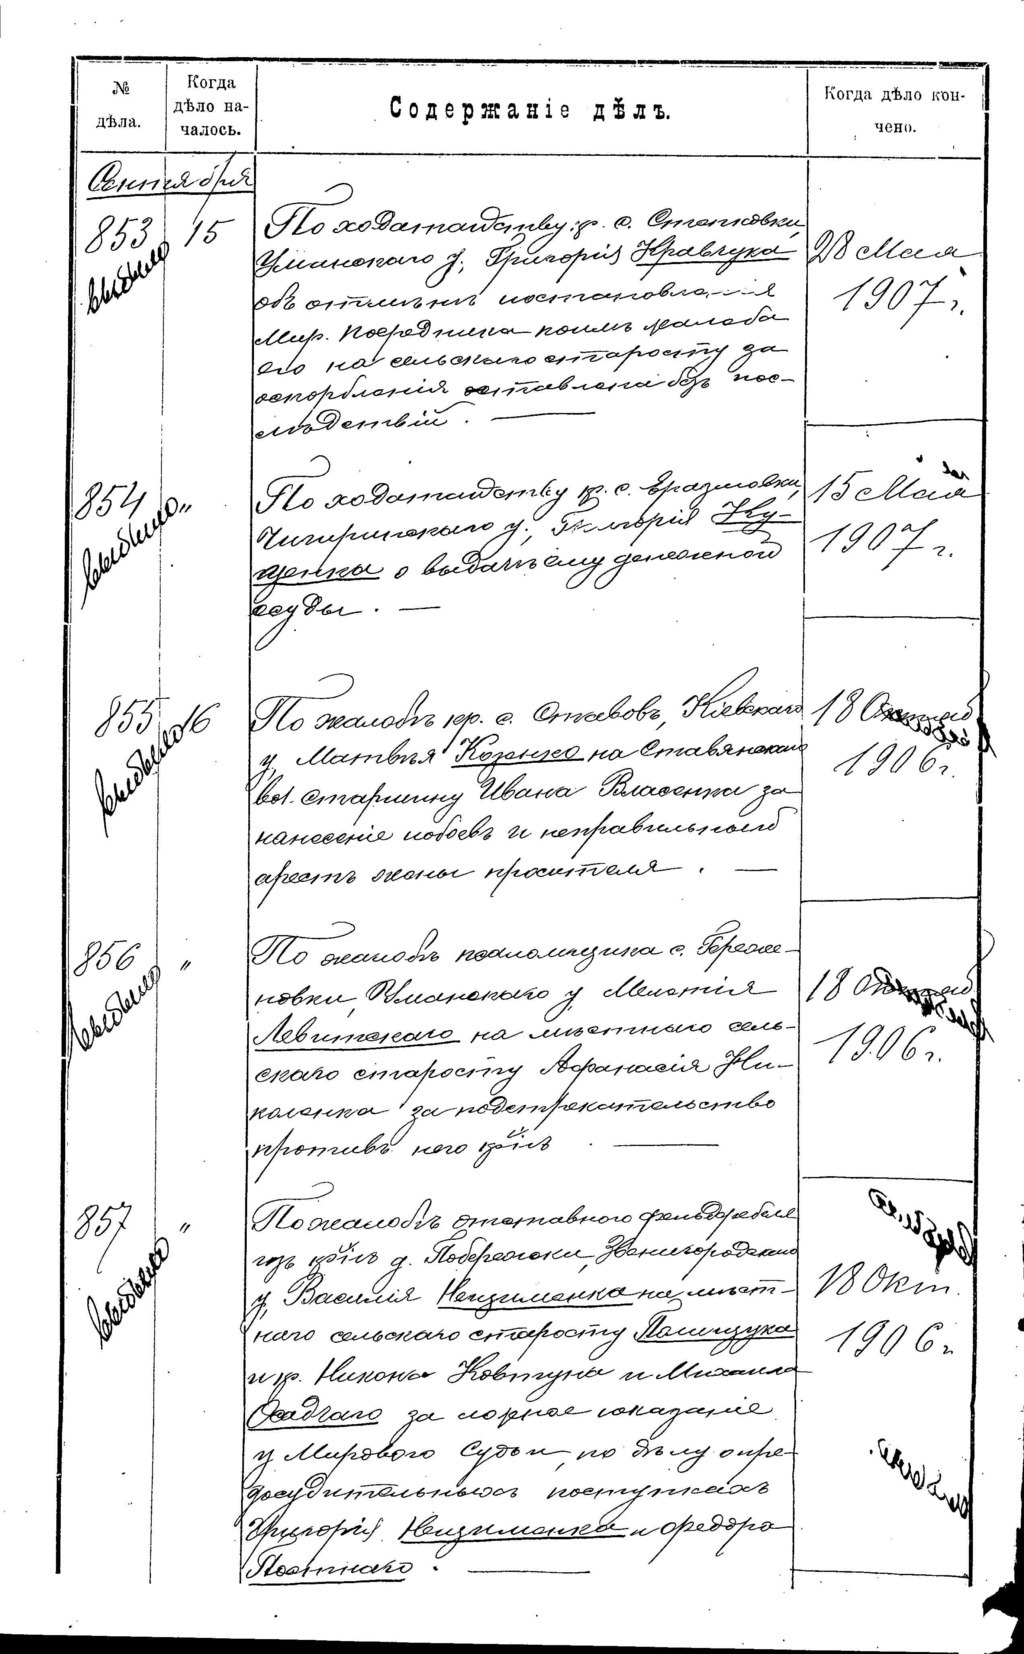 № дѣла.
Когда дѣло началось.
Содержаніе дѣлъ.
Когда дѣло кончено.
Сентября
853 15 По ходатайству кр. с. Степковки,
Уманскаго у., Григорія Кравчука
объ отмѣнѣ постановленія
Мир. Посредника коимъ жалоба
его на сельскаго старосту за
оскорбленія оставлена безъ пос-
лѣдствій. —
28 Мая
1907 г.
выбыло
854 " По ходатайству кр. с.
Чигиринскаго у., Григорія Ку-
ценка о выдачѣ ему денежной
ссуды. —
15 Мая
1907 г.
выбыло
855 16 По жалобѣ кр. с. Ставовъ, Кіевскаго
у. Матвѣя на Ставянскаго
вол. старшину Ивана Власенка за
нанесеніе побоевъ и неправильный
арестъ жены просителя. —
18
1906 г.
выбыло
856 " По жалобѣ псаломщика с. Гереже-
новки, Уманскаго у. Мелетія
Левитскаго на мѣстнаго сель-
скаго старосту Афанасія Ни-
коленка за подстрекательство
противъ него кр—
18
1906 г.
выбыло
857 " По жалобѣ отставного фельдфебеля
изъ д. Побережки, Звенигородскаго
у. Василія Неизименка на мѣст-
наго сельскаго старосту Полищука
и кр. Никона Ковтуна и Михаила
Осадчаго за ложное показаніе
у Мирового Судьи, по дѣлу о пре-
досудительныхъ поступкахъ
Григорія Неизименка и Федора
Постнаго. —
18 Окт.
1906 г.
выбыло